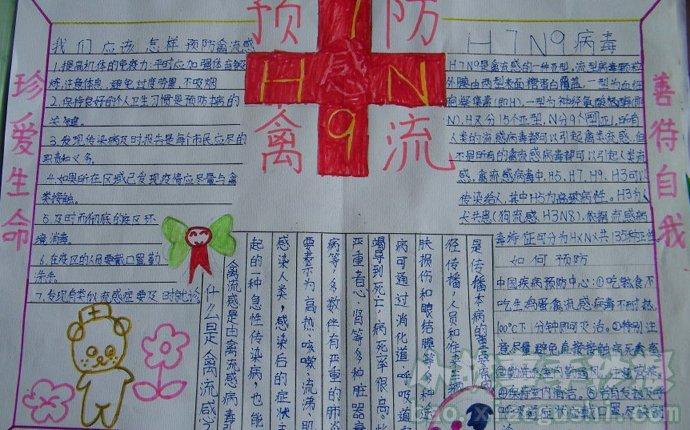 预防
禽流感
H7N9
珍爱生命
善待自我
我们应该怎样预防禽流感
1.提高机体的免疫力:平时应加强体育锻
炼,注意休息,避免过度劳累,不吸烟
2.保持良好的个人卫生习惯是预防本病的
关键。
3.发现传染病及时报告是每个市民应尽的
职责和义务。
4.如果所在区域已发现疫情应尽量与禽
类接触。
5.及时而彻底的疫区环
境消毒。
6.在疫区的人员要戴口罩勤
洗手。
7.发现自类似流感症要及时就诊
H7N9病毒
H7N9是禽流感的一种亚型,流型病毒颗粒
外膜由两型表面糖蛋白覆盖,一型为血细
人类的流感病毒都可以引起禽类流感,但
不是所有的禽流感病毒都可以引起人类流
感,禽流感病毒中,H5、H7、H9、H3可以
传染给人,其中H5为高致病性。H3为人
犬共患(狗流感H3N8)。依据流感病
毒特征可分为HXNX共135种亚型
如何预防
中国疾病预防中心:①吃熟食不
吃生鸡蛋禽流感病毒不耐热
100℃下1分钟即可灭活。②特别注
意尽量避免直接接触病死禽畜
什么是禽流感
禽流感是由禽流感病毒引
起的一种急性传染病,也能
感染人类,感染后的症状主
要表示为高热、咳嗽、流涕、肌
病等,多数伴有严重的肺炎
严重者心、肾等多种脏器衰
竭导到死亡,病死率很高,此
病可通过消化道、呼吸道、皮
肤损伤和眼结膜等
径传播,人员和车
是传播本病的重